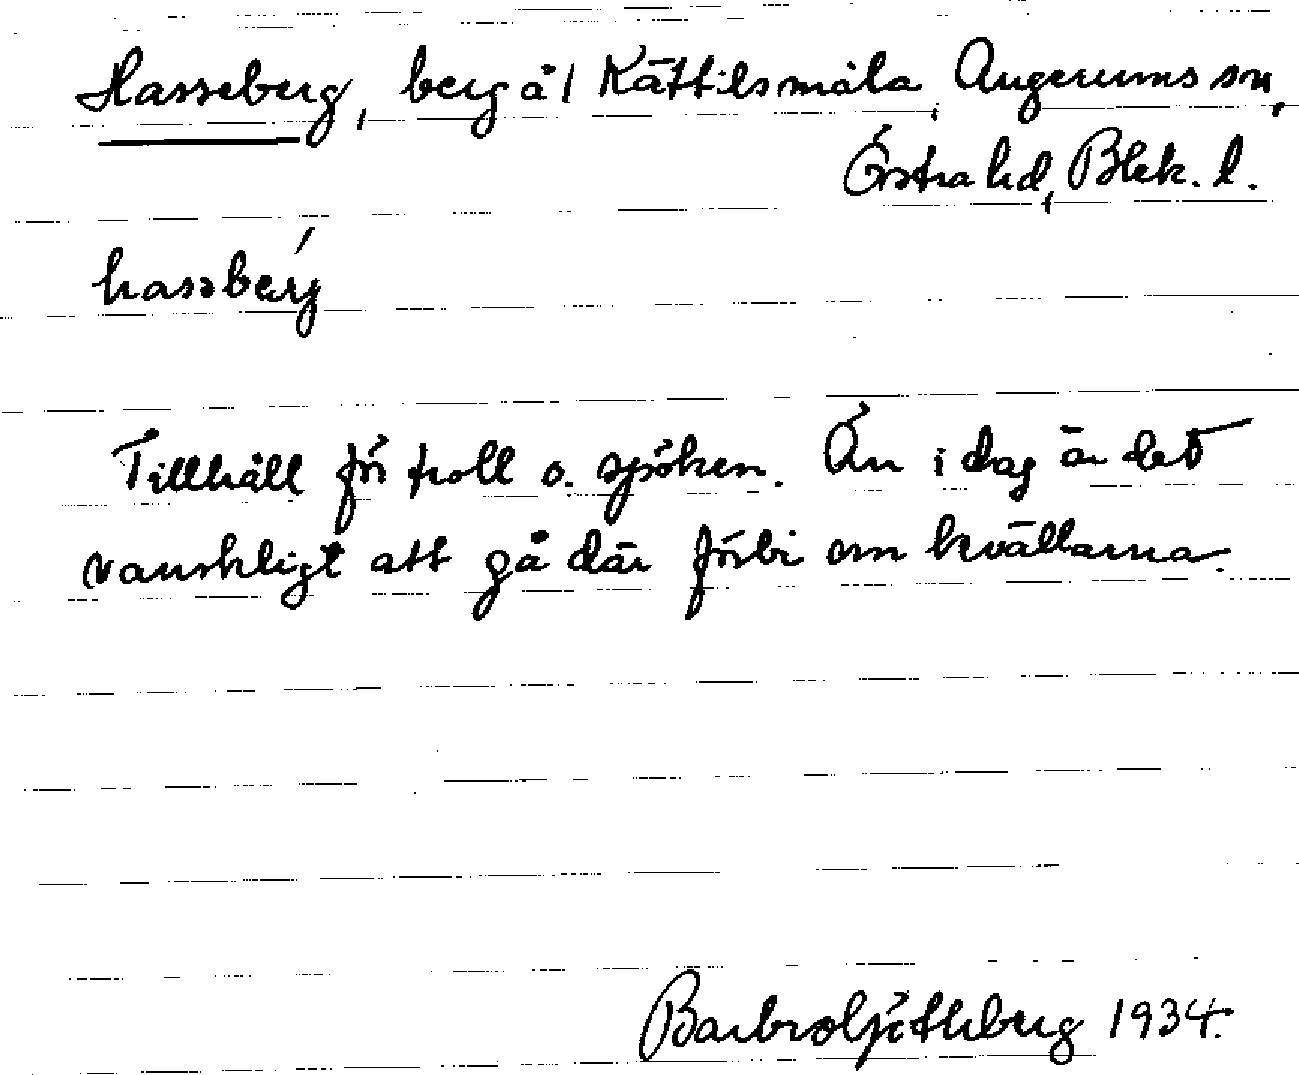 Hasseberg, berg å 1 Kättilsmåla, Augerums sn,
Östra hd, Blek. l.
hassbärj
Tillhåll för troll o. spöken. Än i dag är det
vanskligt att gå där förbi om kvällarna.
Barbro Götherberg 1934.